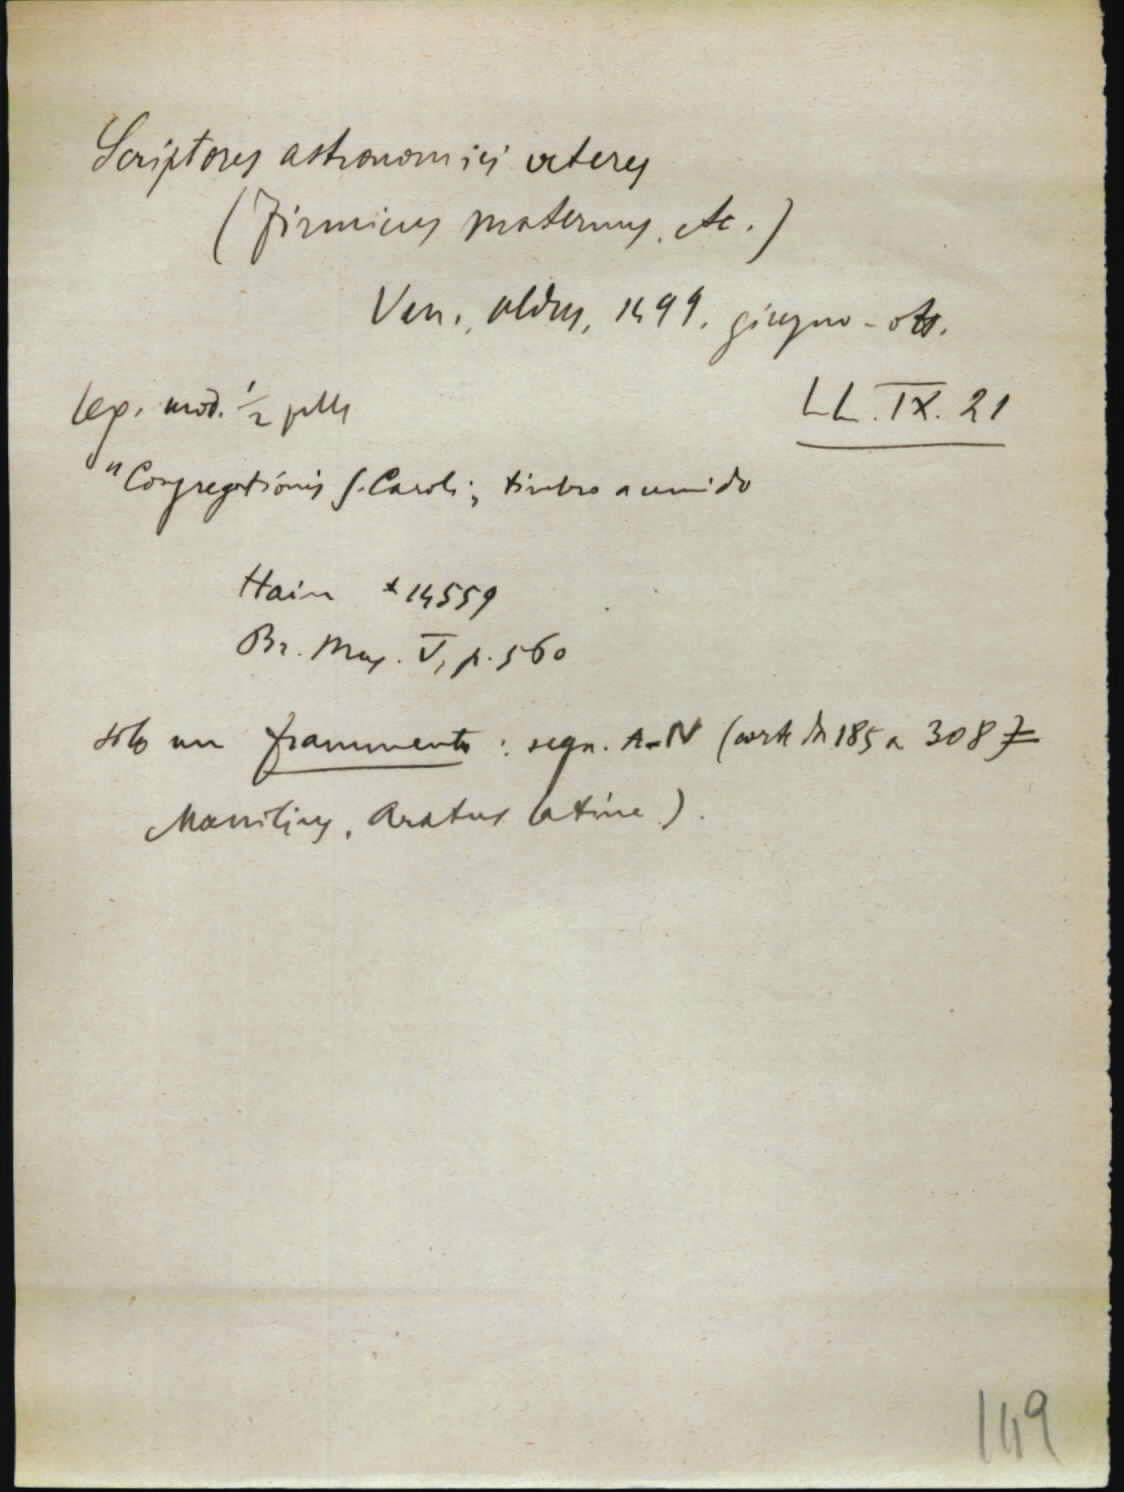 Scriptores astronomici veteres
(Firmicus Maternus, etc.)
Ven., Aldus, 1499, giugno - ott.
Leg. mod. 1/2 pelle
LL. IX. 21
"Congregationis S. Caroli; timbro a umido
Hain *14559
Br. Mus. V, p. 560
solo un frammento: segn. A-N (carte da 185 a 308 =
Manilius, Aratus latine).
149